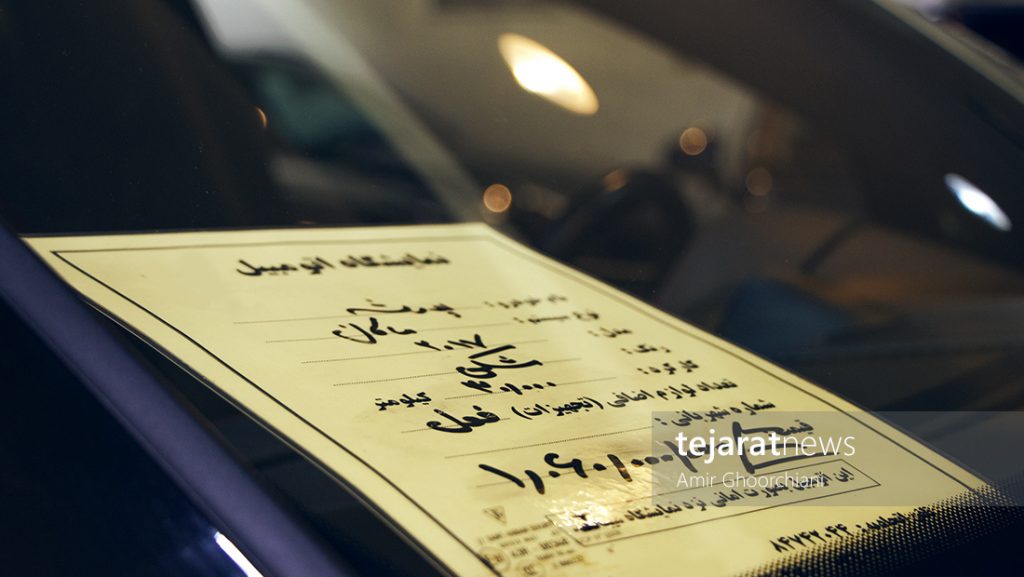 نمایشگاه اتومبیل
نام خودرو : پورشه
نوع سیستم : ماکان
مدل : ۲۰۱۷
رنگ : مشکی
کارکرد : ۳۰/۰۰۰ کیلومتر
تعداد لوازم اضافی (تجهیزات) فول
شماره شهربانی :
قیمت
این اتومبیل بصورت امانی نزد نمایشگاه میباشد
tejaratnews
Amir Ghoorchiani